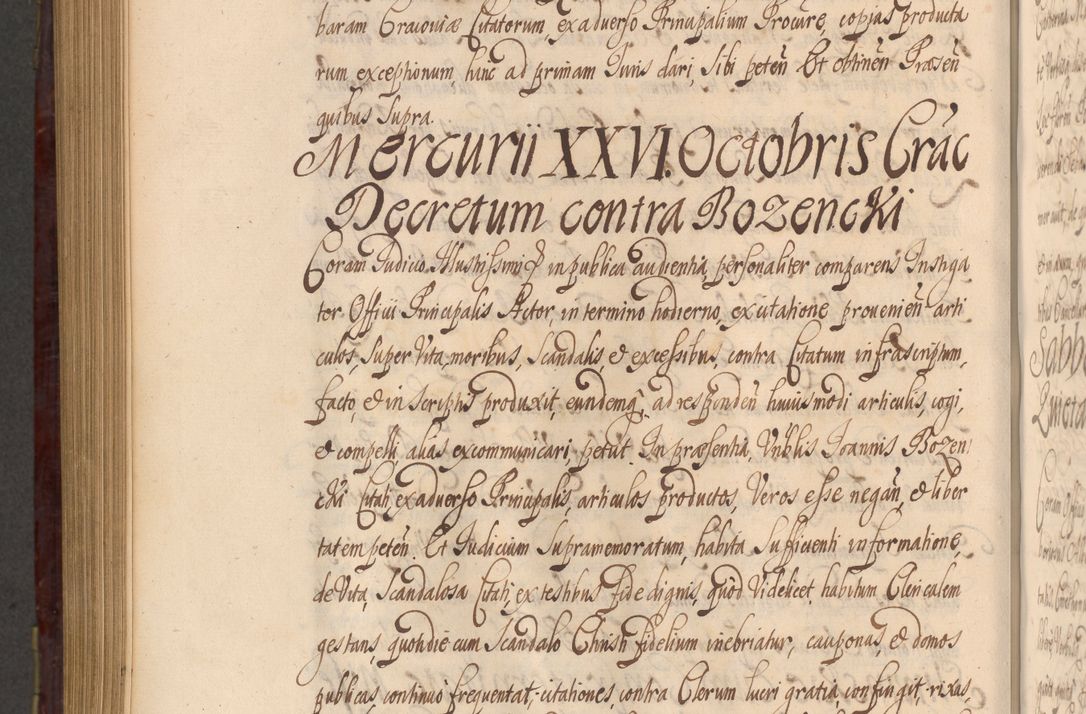 baram Cracoviæ Citatorum, ex adverso Principalium Procure, copias producta
rum exceptionum, hinc ad primam Iuris dari, sibi peteñ Et obtineñ Præseñ
quibus supra.
Mercurii XXVI. Octobris Crac
Decretum contra Bozencki
Coram Iudicio Illustrissimi in publica audientia, personaliter comparens Instiga
tor Officii Principalis Actor, in termino hodierno, ex citatione provenieñ arti
culos, super Vita, moribus, scandalis, et excessibus, contra Citatum infrascriptum,
facto, et in scriptis produxit, eundemq, ad respondeñ huiusmodi articulis, cogi,
et compelli, alias excommunicari, petiit. In præsentia, Vnblis Ioannis Bozen
cki Citati, ex adverso Principalis, articulos productos, Veros esse negañ, et liber
tatem peteñ. Et Iudicium supramemoratum, habita sufficienti informatione,
de Vita, scandalosa Citati, ex testibus fide dignis, quòd Videlicet habitum Clericalem
gestans, quotidie cum scandalo Christi fidelium inebriatur, cauponas, et domos
publicas, continuò frequentat, citationes, contra Clerum lucri gratia, confingit, rixas,